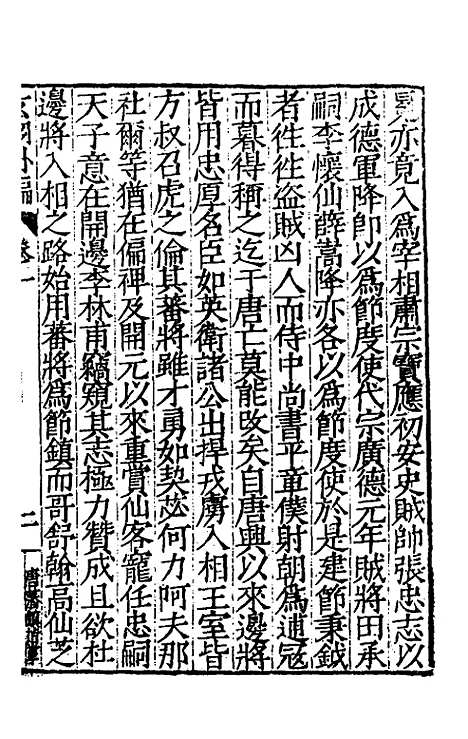 亦竟入爲宰相肅宗寶應初安史賊帥張忠志以
成德軍降卽以爲節度使代宗廣德元年賊將田承
嗣李懷仙薛嵩降亦各以爲節度使於是建節秉鉞
者徃徃盜賊凶人而侍中尚書平章僕射朝爲逋寇
而暮得稱之迄于唐亡莫能攺矣自唐興以來邊將
皆用忠厚名臣如英衛諸公出捍戎虜入相王室皆
方叔召虎之倫其蕃將雖才勇如契苾何力阿史那
社爾等猶在偏裨及開元以來重賞仙客寵任忠嗣
天子意在開邊李林甫竊窺其志極力贊成且欲杜
邊將入相之路始用蕃將爲節鎮而哥舒翰高仙芝
外編
卷一
二
唐藩鎮指掌